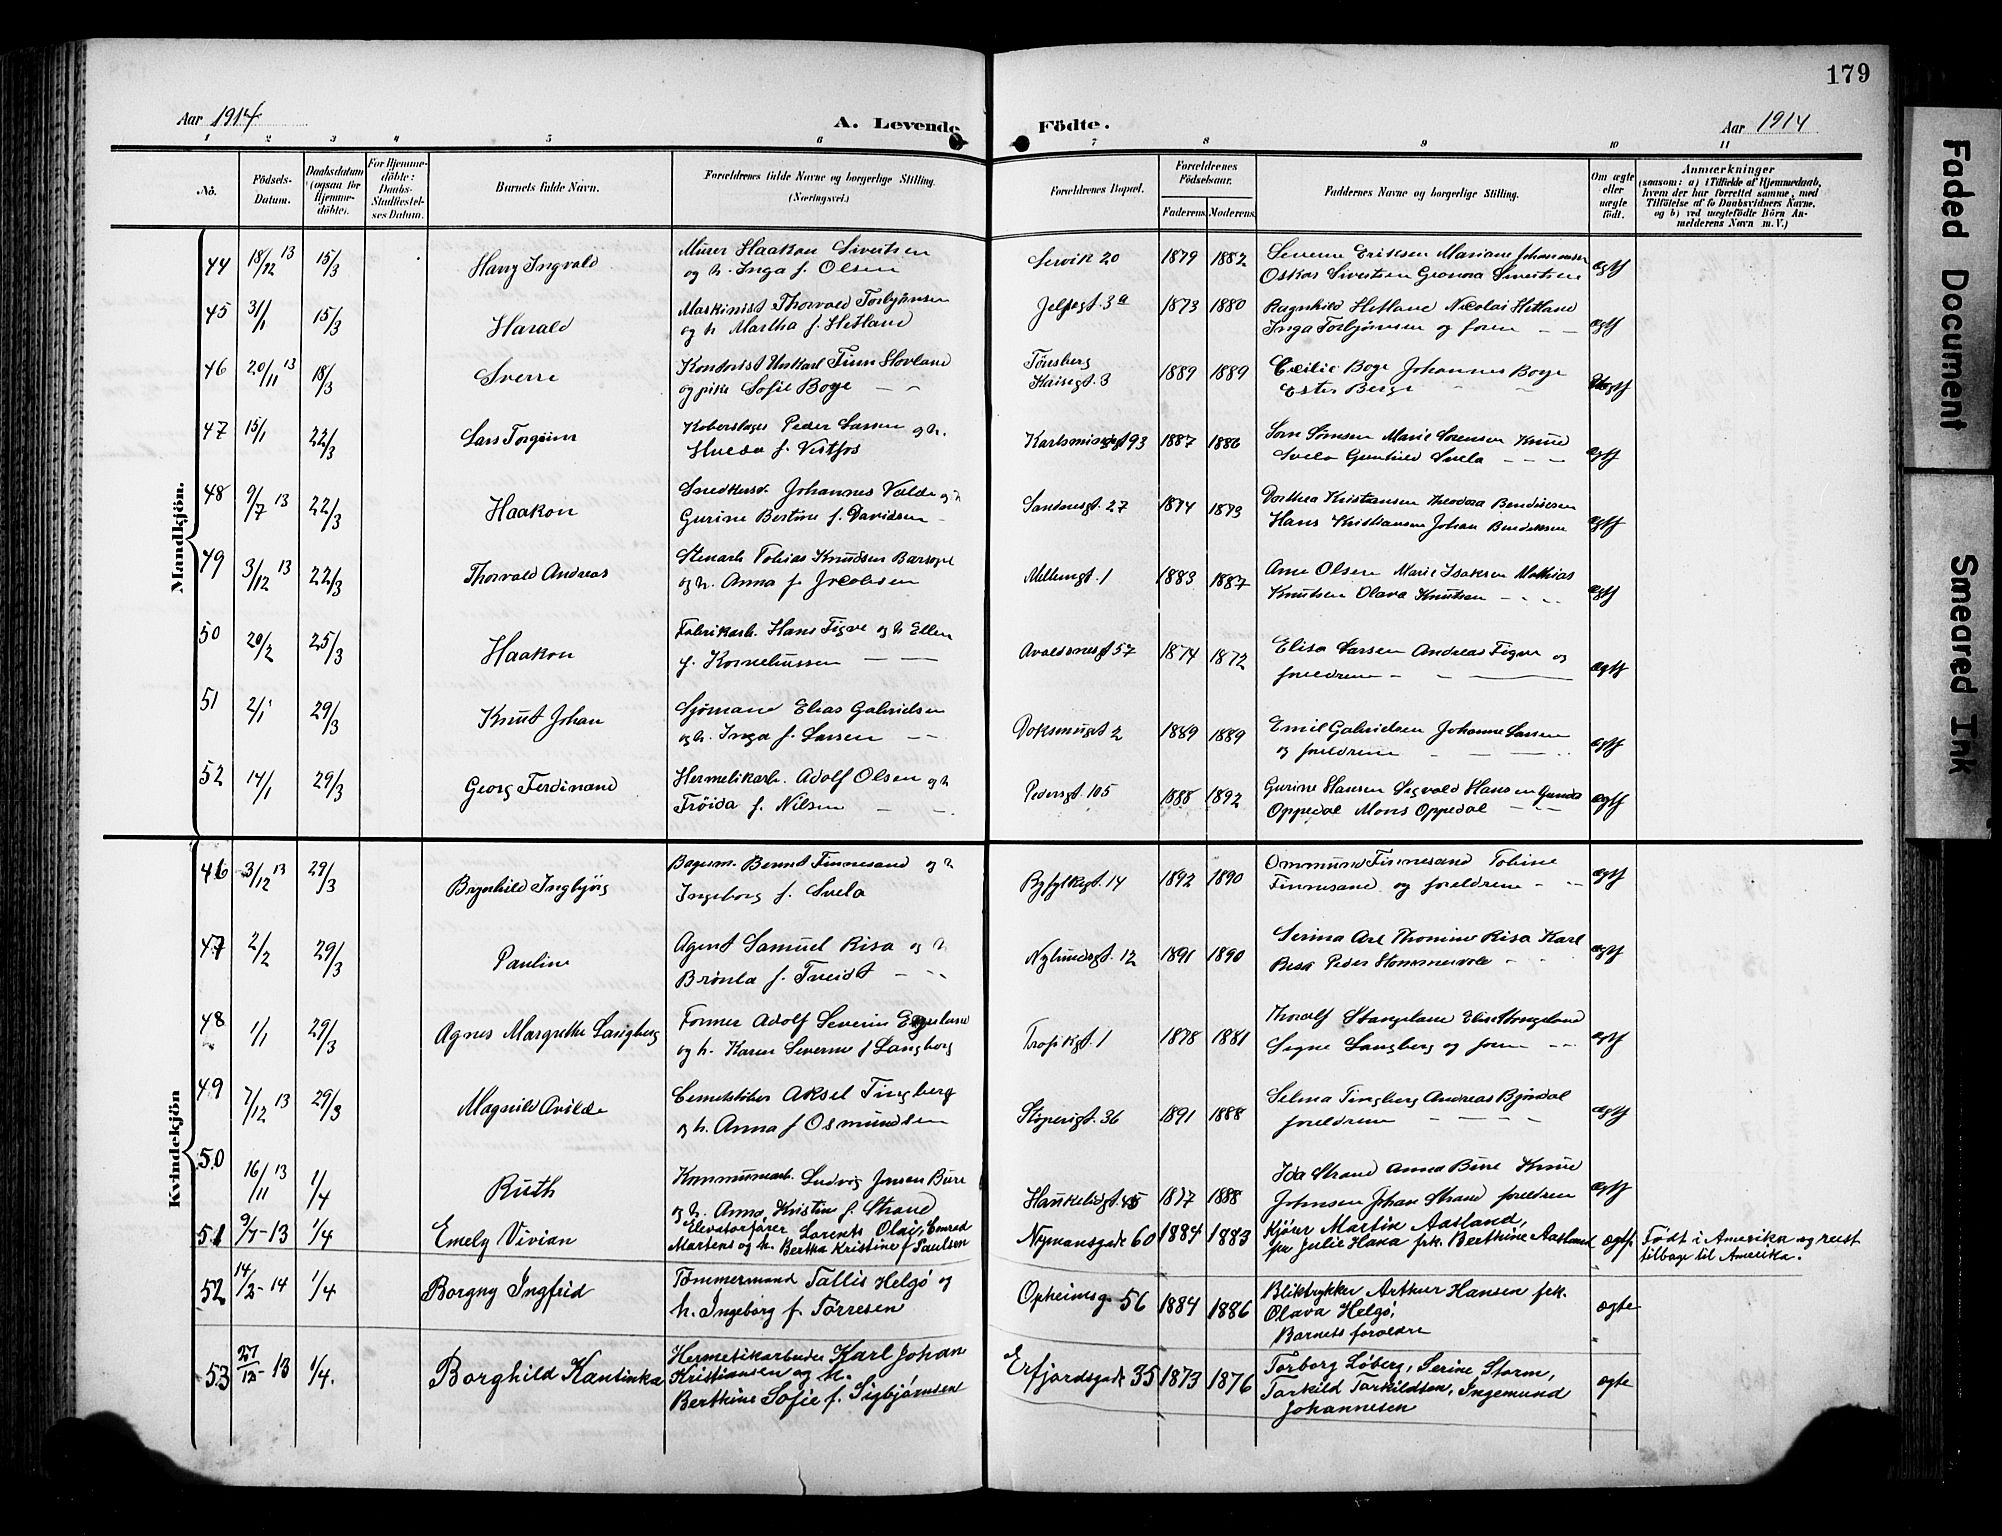 179
Aar 1914
A. Levende Födte.
Aar 1914
1 2 3 4 5 6 7 8 9 10 11
No.
Födsels-Datum.
Daabsdatum (ogsaa for Hjemmedöbte).
For Hjemmedöbte: Daabs-Stadfæstelses Datum.
Barnets fulde Navn.
Forældrenes fulde Navne og borgerlige Stilling. (Næringsvei.)
Forældrenes Bopæl.
Forældrenes Födselsaar.
Faderens. Moderens.
Faddernes Navne og borgerlige Stilling.
Om ægte eller uægte födt.
Anmærkninger
(saasom: a) i Tilfælde af Hjemmedaab, hvem der har forrettet samme, med Tilföielse af to Daabsvidners Navne, og b) ved uægtefödte Börn Anmelderens Navn m.V.)
Mandkjön.
44 18/12 13 15/3 Harry Ingvald Murer Haakon Sivertsen 1879 1882 Severine Eriksen Mariane Johannesen
og h. Inga f. Olsen Oskar Sivertsen Sivertsen ægtf
45 31/1 15/3 Harald Maskinist Thorvald Torbjørnsen 3a 1873 1880 Ragnhild Hetland Nicolai Hetland
og h. Martha f. Hetland Inga Torbjørnsen og foren ægtf
46 20/11 13 18/3 Sverre Finn Hovland 1889 1889 Cecilie Boge Johannes Boge
og pike Sofie Boge Ester Berge
47 15/1 22/3 Peder Larsen og h. 93 1887 1886 Marie Sørensen Knud
Hulda f. Svela Gunhild Svela ægtf
48 9/7 13 22/3 Haakon Johannes og h
Gurine Bertine f. Davidsen 27 1874 1873 Dorthea Kristiansen Theodora Bendiksen
Hans Kristiansen Johan Bendiksen ægtf
49 3/12 13 22/3 Thorvald Andreas Stenarb. Tobias Knudsen
og h. Anna f. Jacobsen 1 1883 1887 Olsen Marie Isaksen Mathias
Knutsen Olava Knutsen ægtf
50 20/2 25/3 Haakon Fabrikarb. Hans Tigve og h Ellen
f. Korneliussen Avaldsnesgt 57 1874 1872 Elisa Larsen Andreas Tigve og
foreldrene ægtf
51 2/1 29/3 Knut Johan Sjømand Elias Gabrielsen
og h. Inga f. Larsen 2 1889 1889 Emil Gabrielsen Johanne Larsen
og foreldrene ægtf
52 14/1 29/3 Georg Ferdinand Hermetikarb. Adolf Olsen og h
f. Nilsen Pedersgt. 105 1888 1892 Gurine Hansen Sigvald Hansen Gunda
Oppedal Mons Oppedal ægtf
Kvindekjön
46 3/12 13 29/3 Brynhild Ingbjørg Bernt Finnesand og h
Ingeborg f. Svela Ryfylkegt. 14 1892 1890 Ommund Finnesand Tobine
Finnesand og foreldrene ægtf
47 2/2 29/3 Pauline Agent Samuel Risa og h
Nylundsgt. 12 1891 1890 Thomine Risa Karl
Risa Peder ægtf
48 1/1 29/3 Agnes Margrethe Langberg Former Adolf Severin
og h. Karen Severine f Langberg 1 1878 1881 Thoralf Stangeland Elise Stangeland
Signe Langberg og foren ægtf
49 7/12 13 29/3 Magnild Aksel Tingberg
og h. Anna f Osmundsen Støperigt. 36 1891 1888 Selma Tingberg Andreas Bjørdal
foreldrene ægtf
50 16/11 13 1/4 Ruth Kommunearb. Ludvig Jonsen Bue
og h. Anna Kristine f. Strand Haukeligt. 45 1877 1888 Ida Strand Anna Bue Knud
Johnsen Johan Strand foreldrene ægtf
51 9/7-13 1/4 Emely Vivian Elevatorfører Lorents Olaf Konrad
Martens og h. Bertha Kristine f Paulsen Nymansgade 60 1884 1883 Kjører Martin Aasland,
frk Julie Hana frk. Berthine Aasland ægtf. Født i Amerika og reist
tilbage til Amerika.
52 14/2-14 1/4 Borgny Ingfrid Tømmermand Tallis Helgø og
h. Ingeborg f. Tørresen Opheimsg 56 1884 1886 Bliktrykker Arthur Hansen frk.
Olava Helgø, ægte
Barnets forældre
53 27/12-13 1/4. Borghild Kantinka Hermetikarbeider Karl Johan
Kristiansen og h.
Berthine Sofie f. Sigbjørnsen Erfjordsgade 35 1873 1876 Torborg Løberg, Serine Storm,
Torkild Torkildsen, Ingemund
Johannesen ægte
Faded Document
Smeared Ink